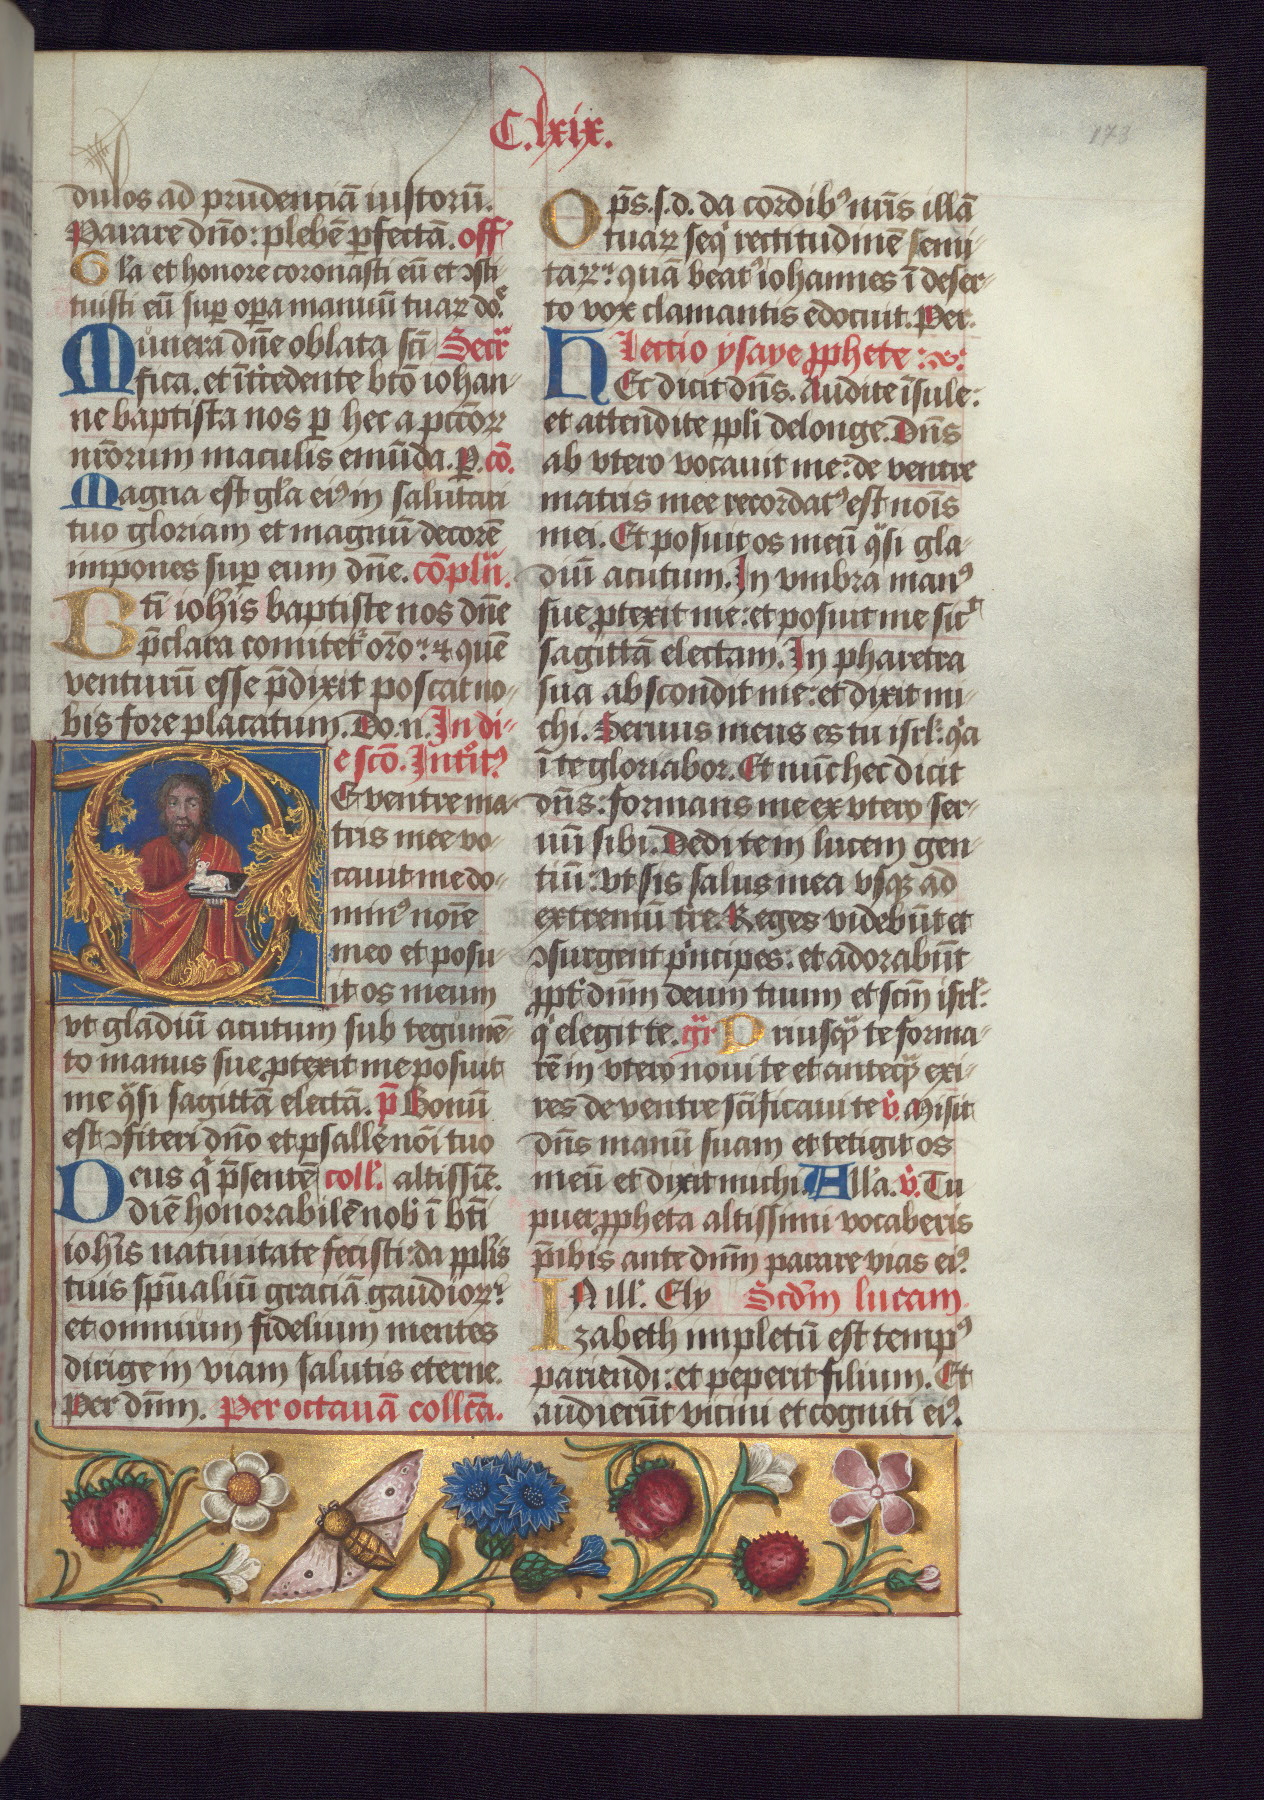 C. lxix.
173
dulos ad prudenciā iustorū.
Parare dn̄o: plebē ꝑfectā. off
Gl̄a et honore coronasti eū et ↄsti-
tuisti eū suꝑ oꝑa manuū tuaꝝ do.e
Munera dn̄e oblata sc̄i Secr̄
fica. et ītc̄edente bt̄o iohan-
ne baptista nos ꝑ hec a pcc̄oꝝ
nr̄orum maculis emūda. P. cō.
Magna est gl̄a eiꝰ in salutari
tuo gloriam et magnū decorē
impones suꝑ eum dn̄e. cōplū.
Bti ioh̄is baptiste nos dn̄e
p̄clara comitet᷑ or̄o: ⁊ quē
venturū esse p̄dixit poscat no-
bis fore placatum. Do. n. In di-
e sc̄o. Introitꝰ
De ventre ma-
tris mee vo-
cauit me do-
minꝰ noīe
meo et posu-
it os meum
vt gladiū acutum sub tegumē-
to manus sue ꝓtexit me posuit
me q̄si sagittā electā. p̄ Bonū
est ↄfiteri dn̄o et psallē noī tuo
Deus q̄ p̄sentē coll. altissīe.
diē honorabilē nob̄ ī bt̄i
ioh̄is natiuitate fecisti: da ppl̄is
tuis sp̄ualiū graciā gaudioꝝ:
et omnium fidelium mentes
dirige in viam salutis eterne.
Per dn̄m. Per octauā collc̄a.
Op̄s. s. d. da cordibꝰ nr̄is illā
tuaꝝ seq̄ rectitudinē semi-
taꝝ: quā beatꝰ iohannes ī deser-
to vox clamantis edocuit. Per.
Lectio ysaye ꝓphete:
Hec dicit dn̄s. Audite īsule:
et attendite ppl̄i de longe. Dn̄s
ab vtero vocauit me: de ventre
matris mee recordatꝰ est noīs
mei. Et posuit os meū q̄si gla-
diū acutum. In vmbra manꝰ
sue ꝓtexit me: et posuit me sic̄
sagittā electam. In pharetra
sua abscondit me: et dixit mi-
chi. Seruus meus es tu isrl̄: q̄a
ī te gloriabor. Et nūc hec dicit
dn̄s: formans me ex vtero ser-
uū sibi. Dedi te in lucem gen-
tiū: vt sis salus mea vsqꝫ ad
extremū tr̄e. Reges videbūt et
ↄsurgent p̄ncipes: et adorabūt
ꝓpt̄ dn̄m deum tuum et sc̄m isrl̄:
q̄ elegit te. gr̄ Priusꝙ̄ te forma-
rē in vtero noui te et anteꝙ̄ exi-
res de ventre sc̄ificaui te v̄. Misit
dn̄s manū suam et tetigit os
meū et dixit michi. All̄a. v̄. Tu
puer ꝓpheta altissimi vocaberis
p̄ibis ante dn̄m parare vias eiꝰ.
IN ill̄. Ely Scd̄m lucam.
zabeth impletū est tempꝰ
pariendi: et peperit filium. Et
audierūt vicini et cogniti eiꝰ.